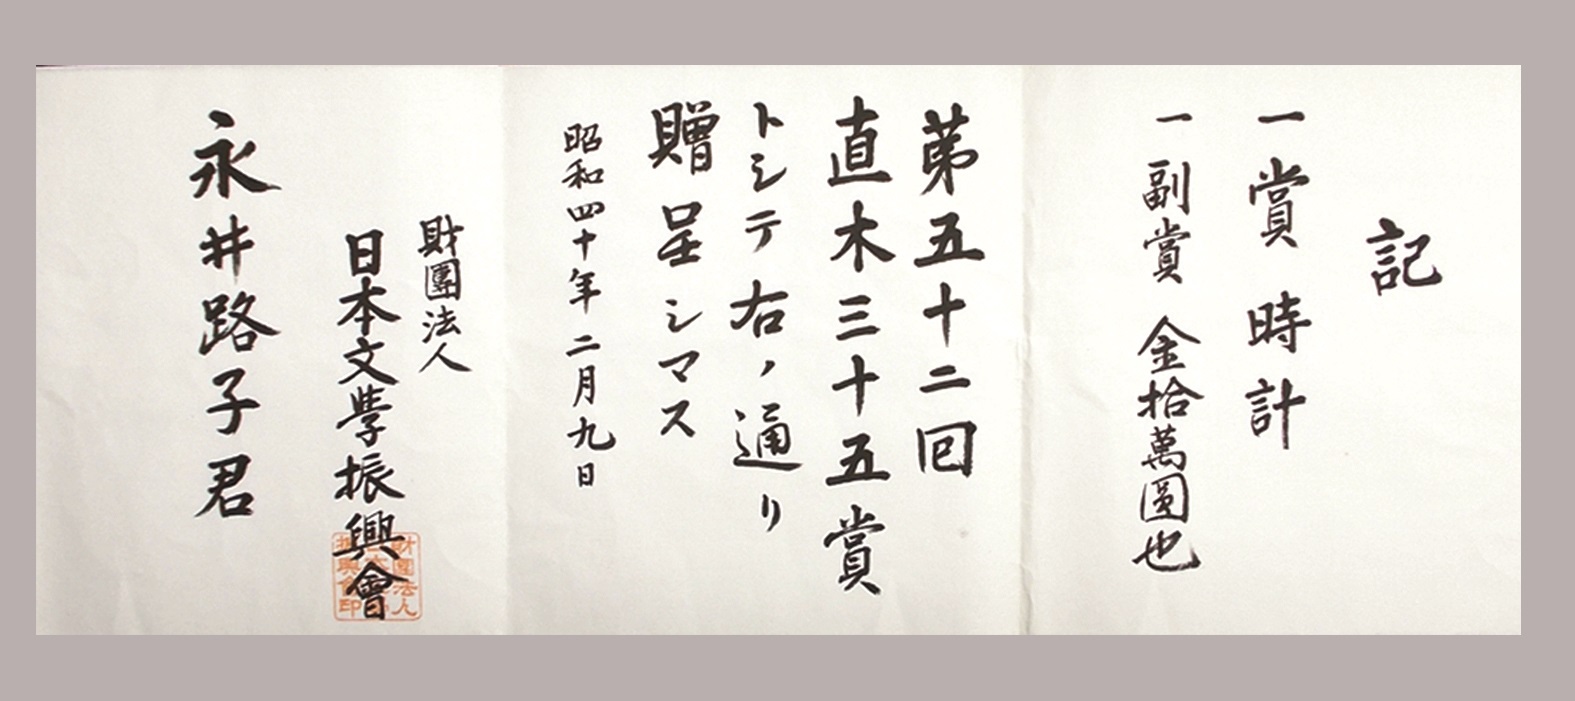 記
一賞 時計
一副賞 金拾萬圓也
第五十二回
直木三十五賞
トシテ右ノ通リ
贈呈シマス
昭和四十年二月九日
財團法人
日本文學振興會
永井路子君
財團法人
振興會印